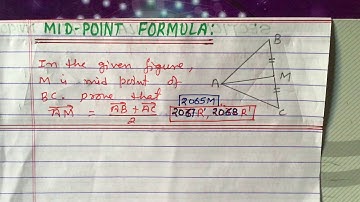 MID-POINT FORMULA:
In the given figure,
M is mid point of
BC. prove that
AM = AB + AC / 2
2065M
2067R', 2068 R'
B
M
A
C